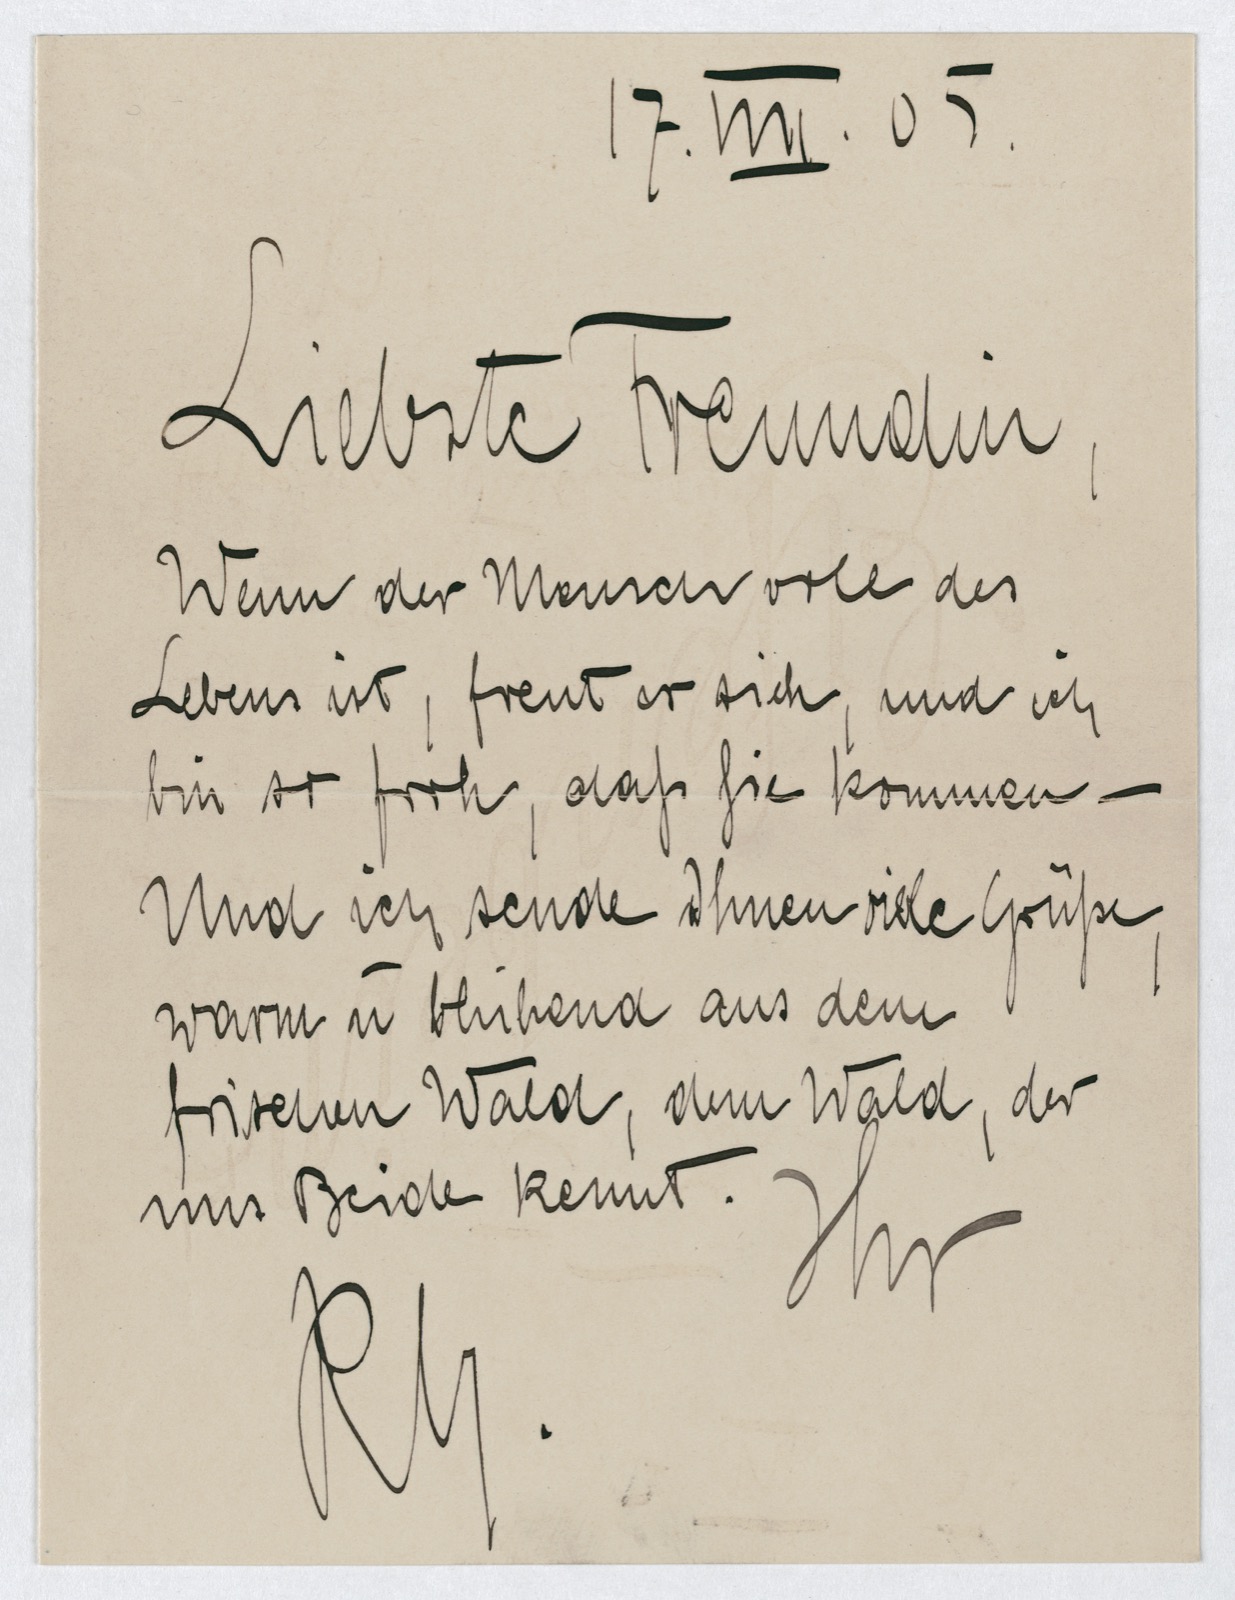 17. VIII. 05.
Liebste Freundin,
Wenn der Mensch voll des
Lebens ist, freut er sich, und ich
bin so froh, daß Sie kommen —
Und ich sende Ihnen viele Grüße,
warm ū blühend aus dem
frischen Wald, dem Wald, der
uns Beide kennt. Ihr